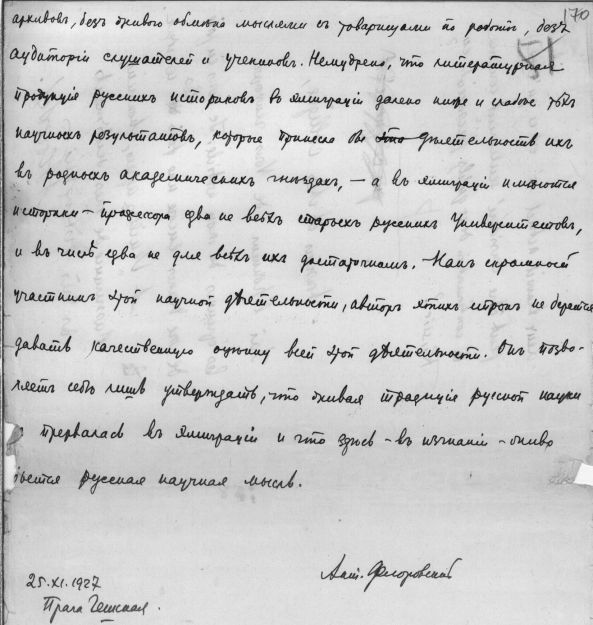 170
архивовъ, безъ живого обмѣна мыслями съ товарищами по работѣ, безъ
аудиторіи слушателей и учениковъ. Немудрено, что литературная
продукція русскихъ историковъ въ эмиграціи далеко ниже и слабѣе тѣхъ
научныхъ результатовъ, которые принесла бы дѣятельность ихъ
въ родныхъ академическихъ гнѣздахъ, – а въ эмиграціи имѣются
историки – профессора едва не всѣхъ старыхъ русскихъ Университетовъ,
и въ числѣ едва не для всѣхъ ихъ достаточномъ. скромной
участникъ этой научной дѣятельности, авторъ этихъ строкъ не берется
давать качественную оцѣнку всей этой дѣятельности. Онъ позво-
ляетъ себѣ лишь утверждать, что живая традиція русской науки
прервалась въ эмиграціи и что здѣсь – въ изгнаніи – живо
бьется русская научная мысль.
Ант. Флоровскій
25.XI.1927
Прага Чешская.